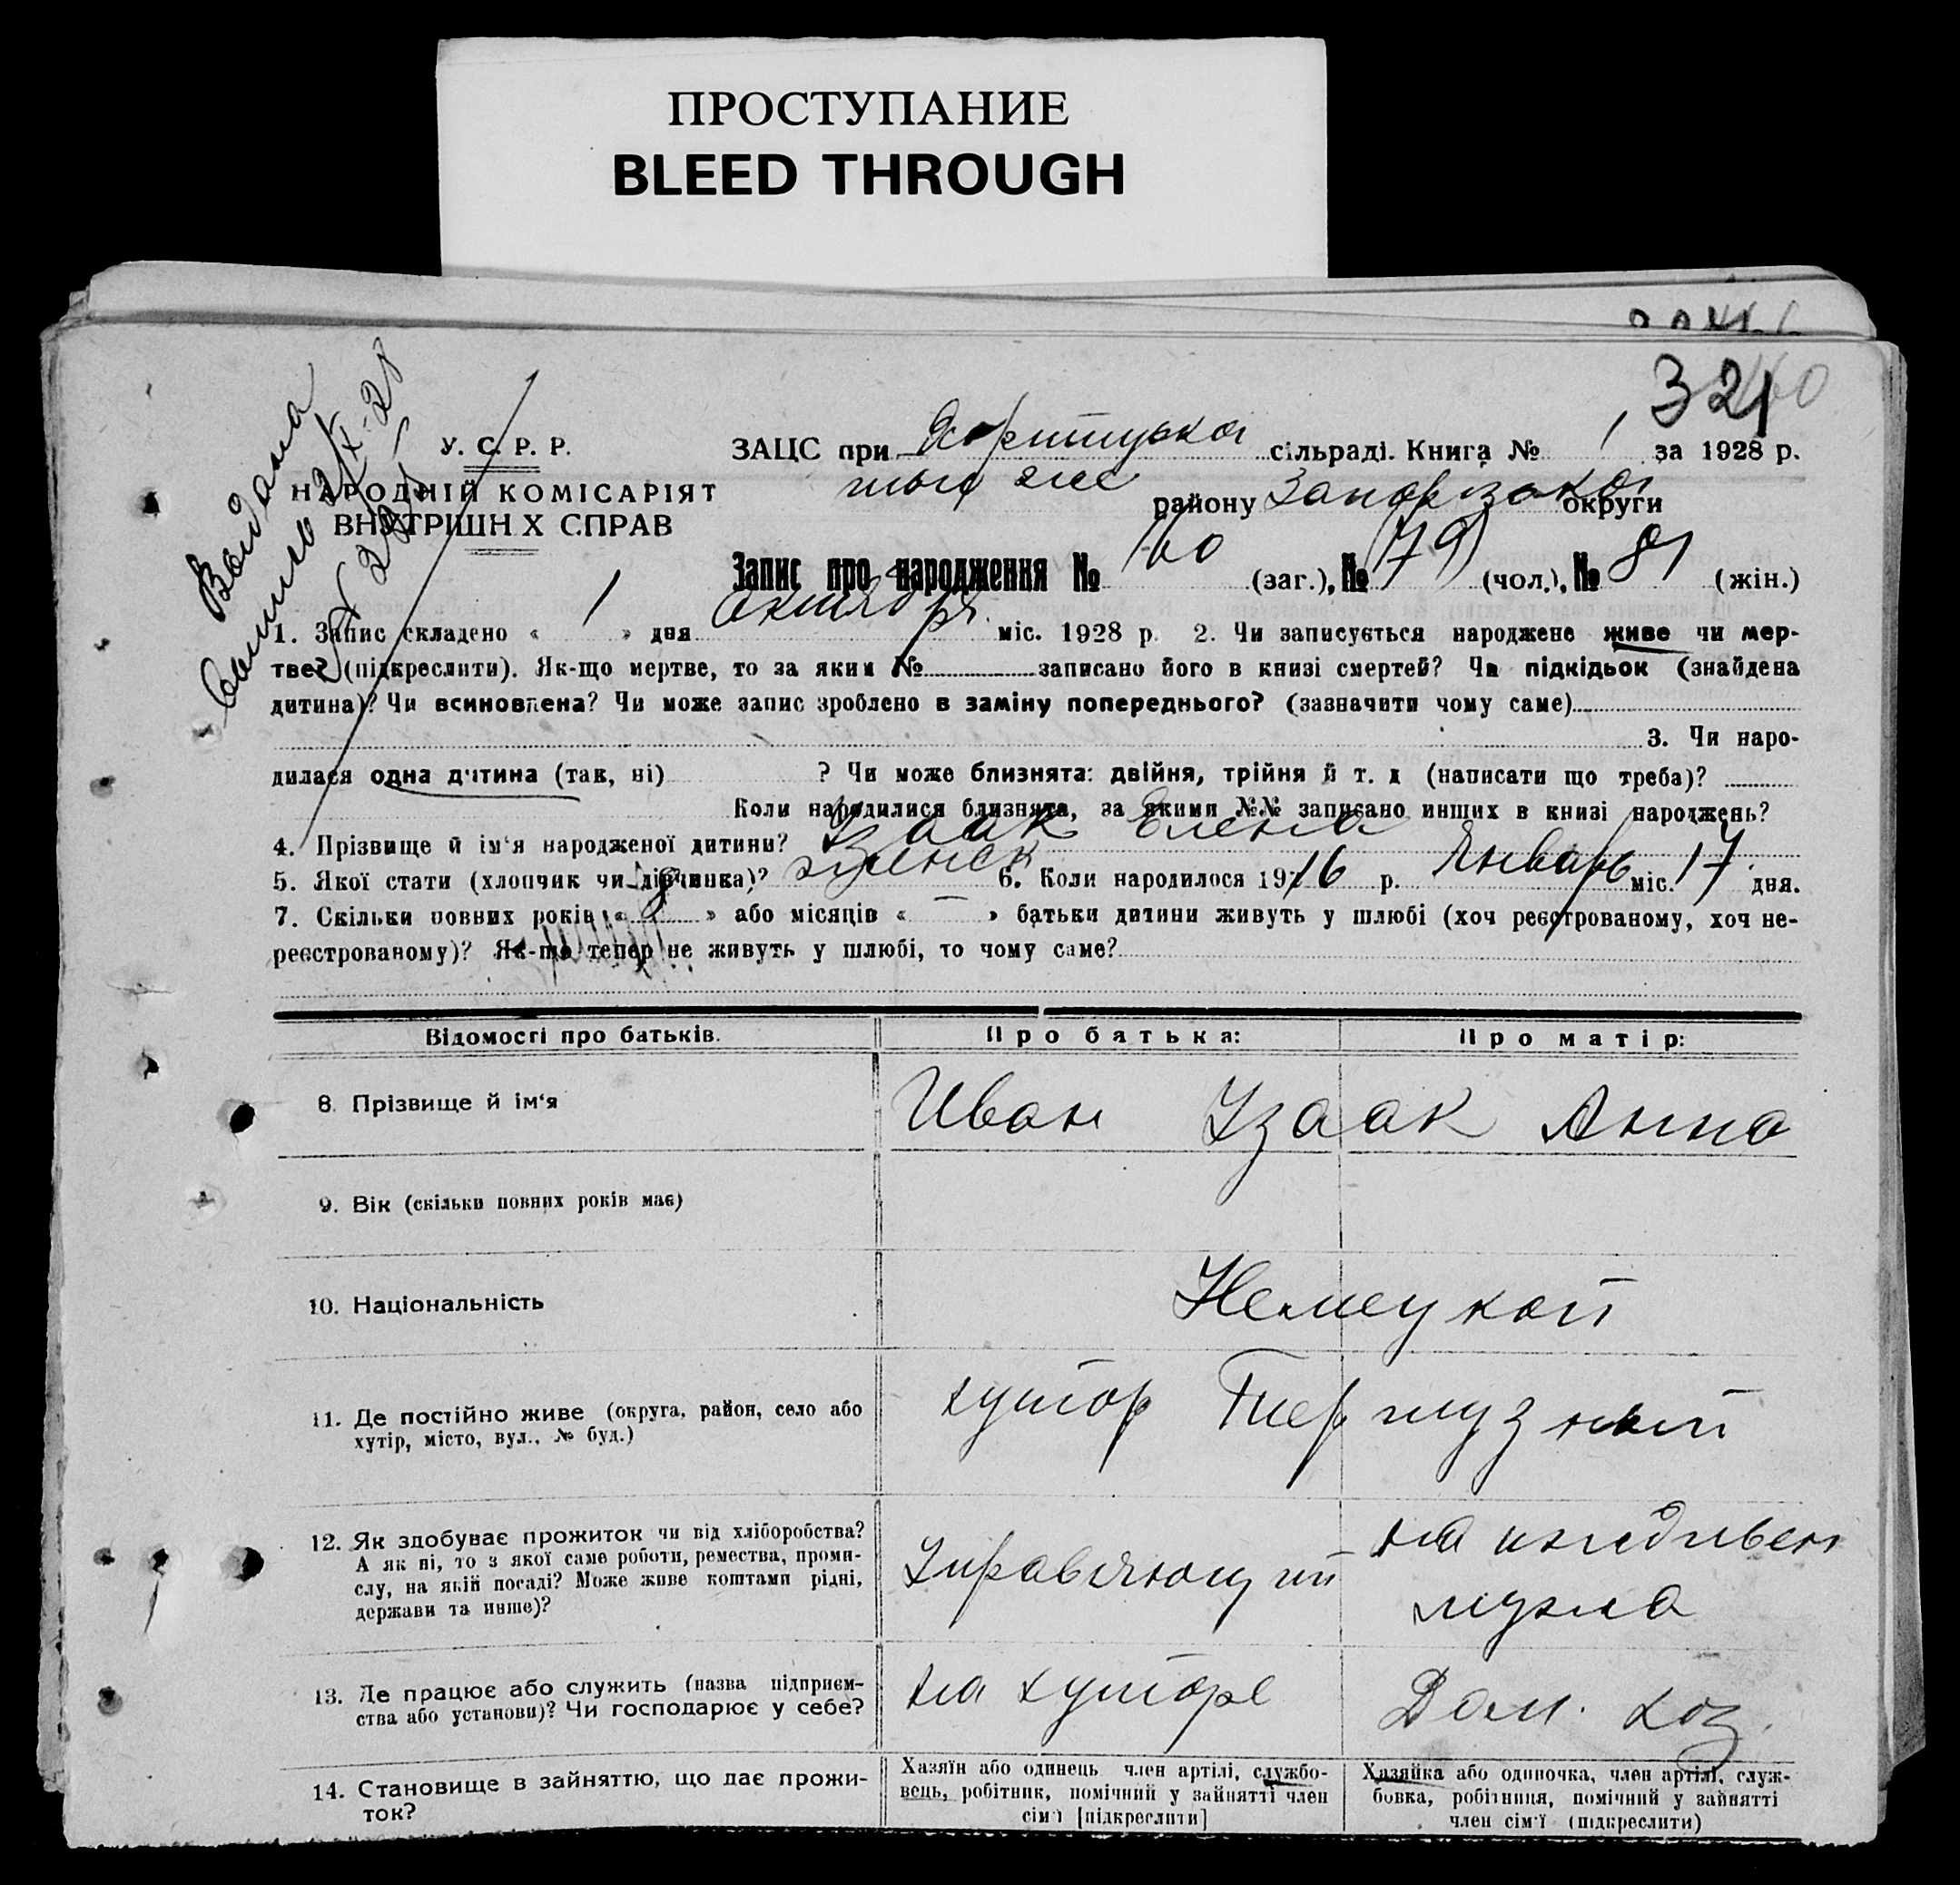 ПРОСТУПАНИЕ
BLEED THROUGH
321
Видана
У. С. Р. Р.
НАРОДНІЙ КОМІСАРІЯТ
ВНУТРІШН Х СПРАВ
ЗАЦС при Хортицькой сільраді. Книга № 1 за 1928 р.
району Запорізької округи
Запис про народження № 160 (заг.), № 79 (чол.), № 81 (жін.)
1. Запис складено « 1 » дня октября міс. 1928 р. 2. Чи записується народжене живе чи мер-
тве? (підкреслити). Як-що мертве, то за яким № записано його в книзі смертей? Чи підкідьок (знайдена
дитина)? Чи всиновлена? Чи може запис зроблено в заміну попереднього? (зазначити чому саме)
3. Чи наро-
дилася одна дитина (так, ні) ? Чи може близнята: двійня, трійня й т. д (написати що треба)?
Коли народилися близнята, за якими №№ записано инших в книзі народжень?
4. Прізвище й ім'я народженої дитини? Узаак Елена
5. Якої стати (хлопчик чи дівчинка)? женск 6. Коли народилося 1916 р. Январь міс. 17 дня.
7. Скільки повних років « » або місяців « — » батьки дитини живуть у шлюбі (хоч реєстрованому, хоч не-
реєстрованому)? Як-що тепер не живуть у шлюбі, то чому саме?
Відомості про батьків. Про батька: Про матір:
8. Прізвище й ім'я Иван Узаак Анна
9. Вік (скільки повних років має)
10. Національність Немецкой
11. Де постійно живе (округа, район, село або
хутір, місто, вул., № буд.)
хутор
12. Як здобуває прожиток чи від хліборобства?
А як ні, то з якої саме роботи, ремества, проми-
слу, на якій посаді? Може живе коштами рідні,
держави та инше)?
Управляющий
на иждивен
мужа
13. Де працює або служить (назва підприєм-
ства або установи)? Чи господарює у себе?
на хуторе
Дом. хоз.
14. Становище в зайняттю, що дає прожи-
ток?
Хазяїн або одинець член артілі, службо-
вець, робітник, помічний у зайнятті член
сім'ї [підкреслити]
Хазяйка або одиночка, член артілі, служ-
бовка, робітниця, помічний у зайнятті
член сім'ї (підкреслити)